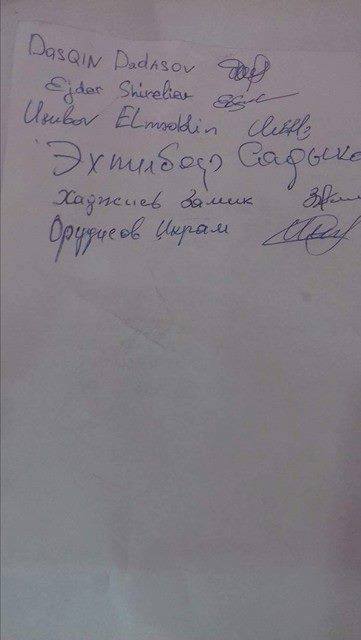 DASQIN DADASOV
Ejder Shireliev
Usubov Elməddin
Эхтибар Садыко
Хаджиев Замик
Оруджов Икрам